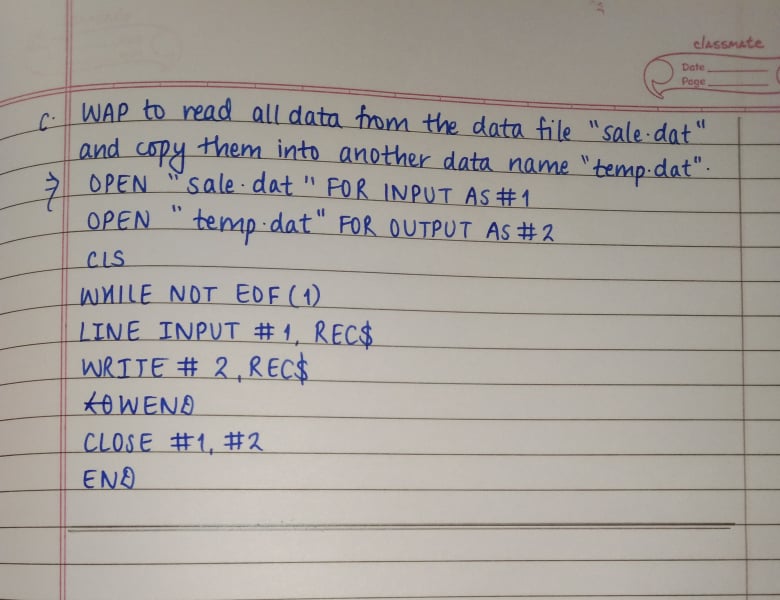 classmate
Date
Page
c. WAP to read all data from the data file "sale.dat"
and copy them into another data name "temp.dat".
⇒ OPEN "sale.dat" FOR INPUT AS #1
OPEN "temp.dat" FOR OUTPUT AS #2
CLS
WHILE NOT EOF(1)
LINE INPUT #1, REC$
WRITE # 2, REC$
WEND
CLOSE #1, #2
END